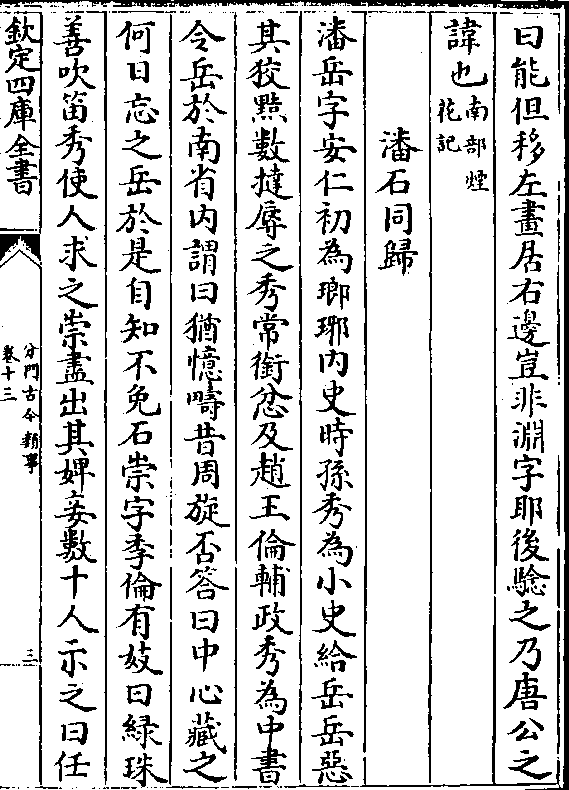 曰能但移左畫居右邊豈非淵字耶後驗之乃唐公之
諱也南部煙
花記
潘石同歸
潘岳字安仁初為瑯琊内史時孫秀為小史給岳岳惡
其狡黠數撻辱之秀常銜忿及趙王倫輔政秀為中書
令岳於南省内謂曰猶憶疇昔周旋否答曰中心藏之
何日忘之岳於是自知不免石崇字季倫有妓曰綠珠
善吹笛秀使人求之崇盡出其婢妾數十人示之曰任
欽定四庫全書
分門古今類事
卷十三
三